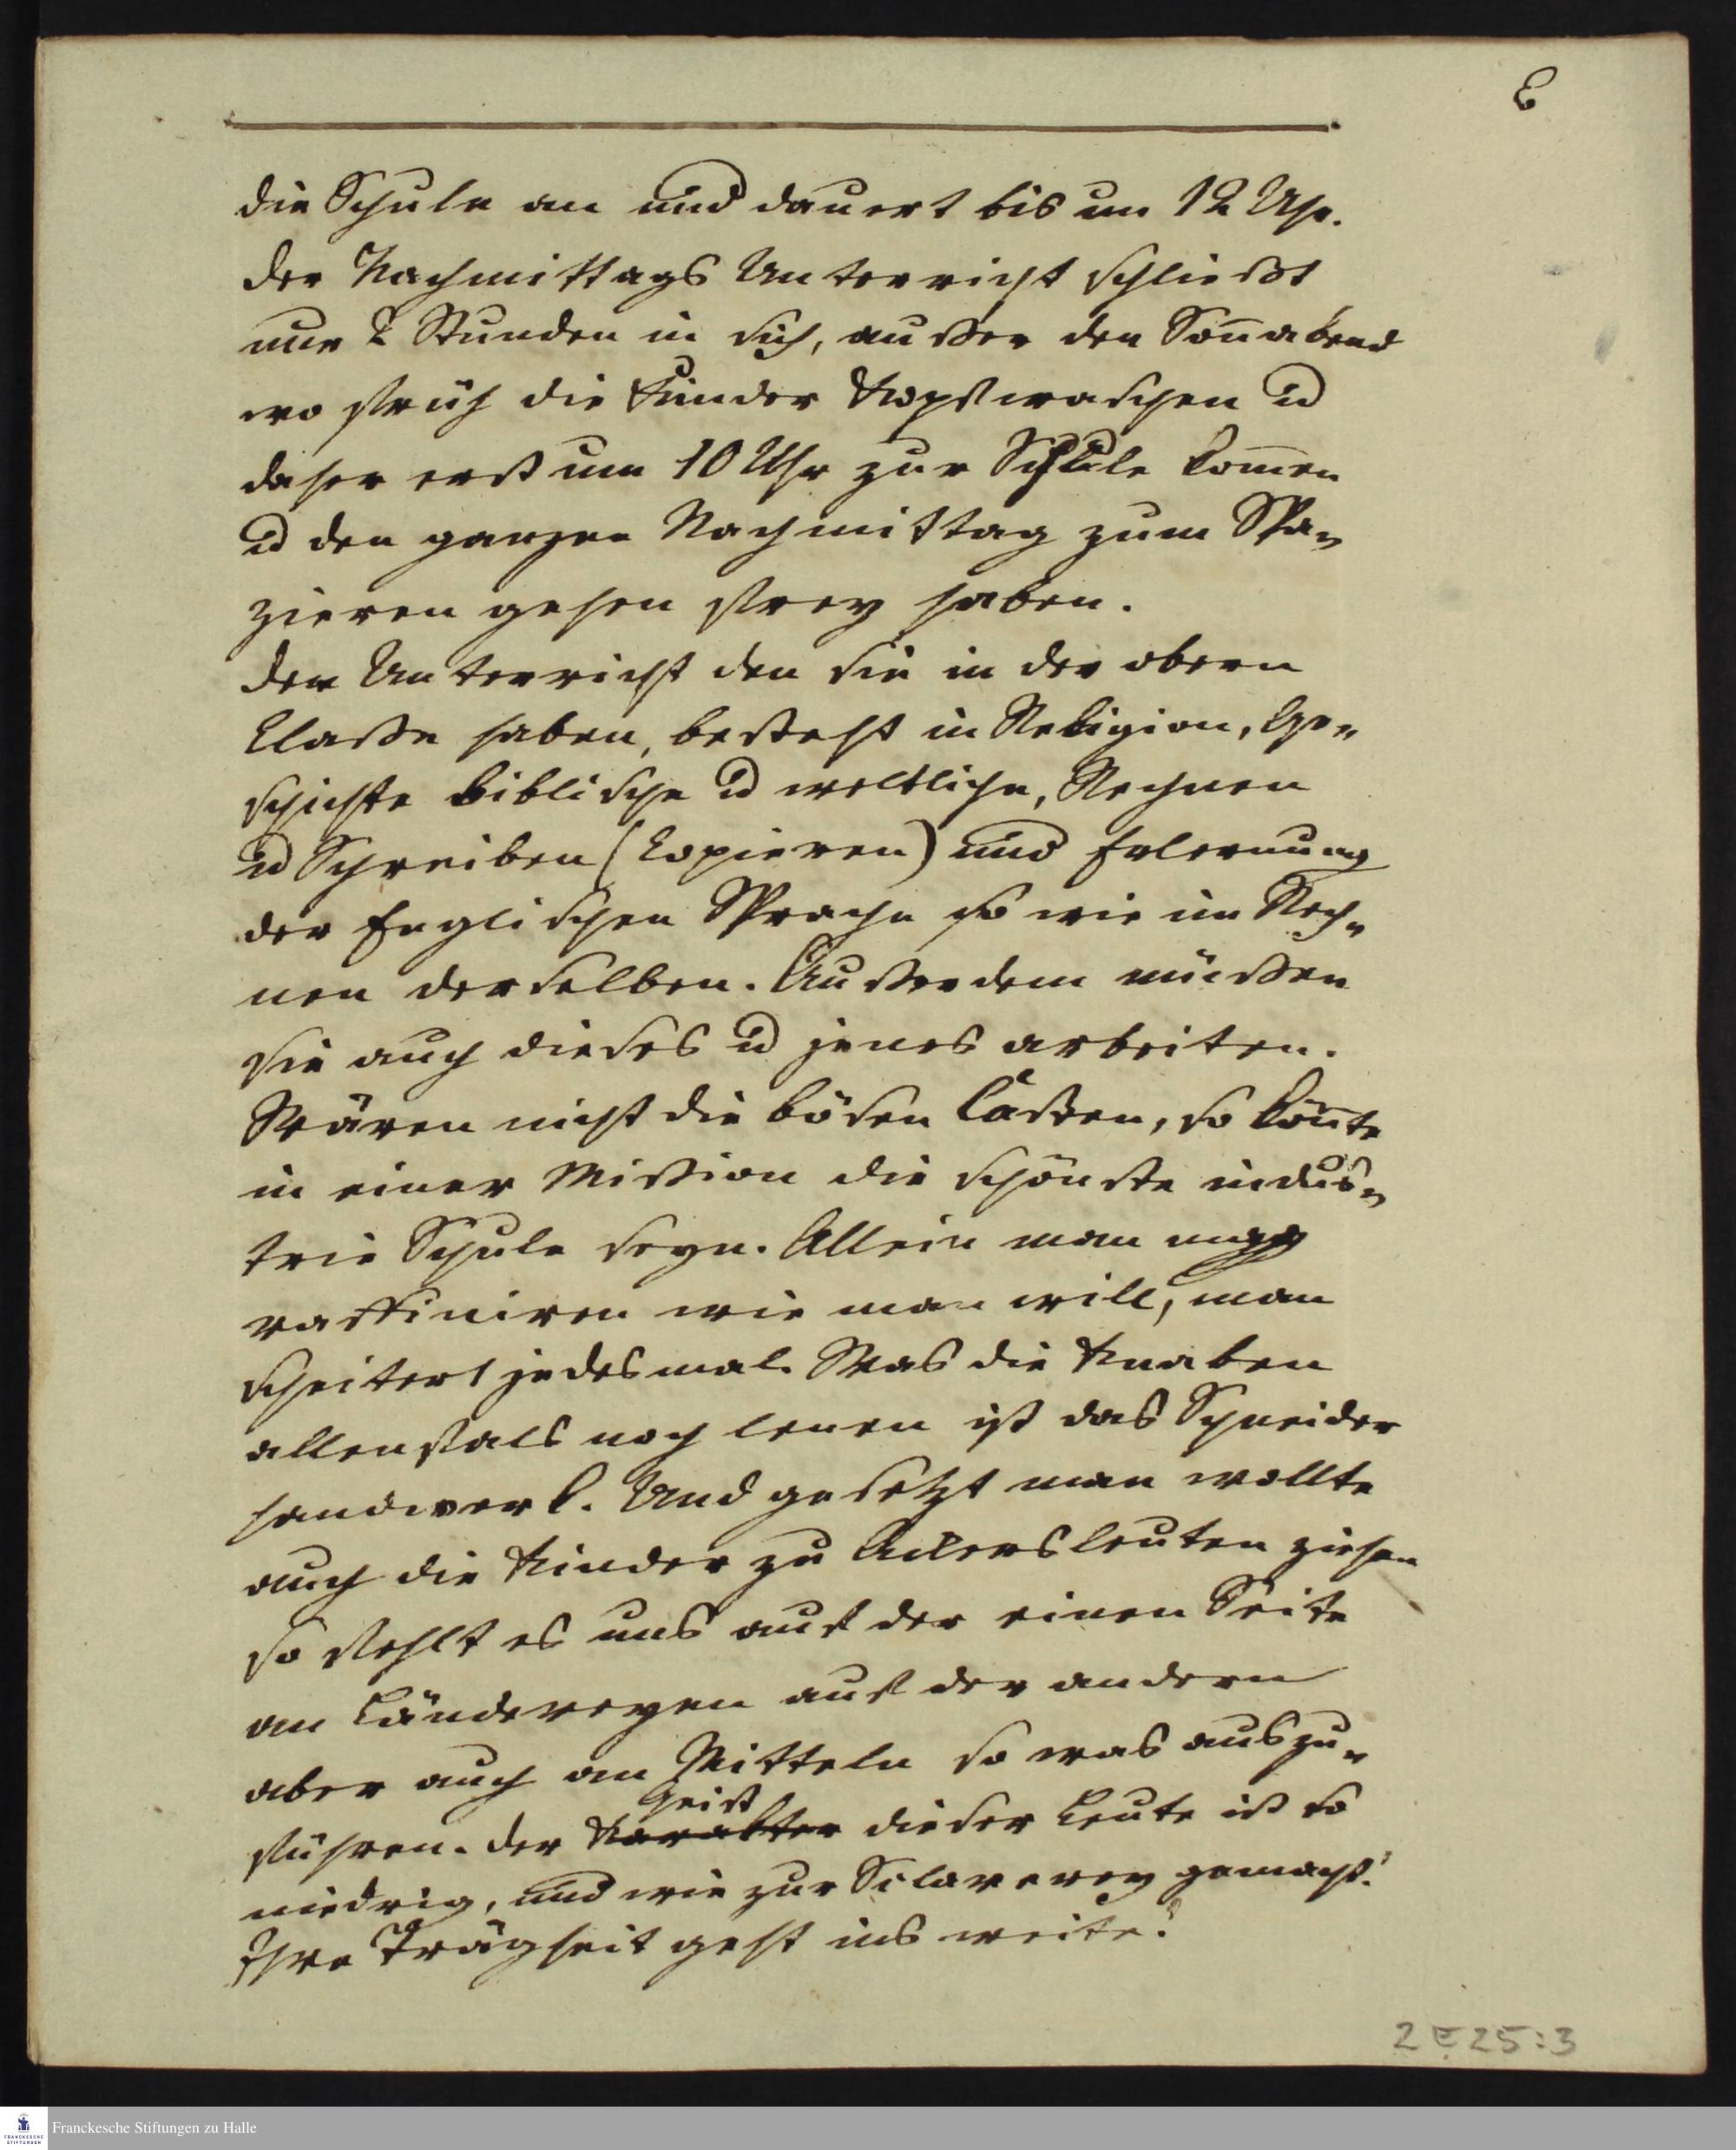 6
die Schule an und dauert bis um 12 Uhr.
der Nachmittags Unterricht schließt
nur 2 Stunden in sich, außer den Soñabend
wo früh die Kinder Kopfwaschen u
daher erst um 10 Uhr zur Schule kom̄en
u den ganzen Nachmittag zum Spa-
zieren gehen frey haben.
der Unterricht den sie in der obern
Claße haben, besteht in Religion, Ge-
schichte biblische u weltliche, Rechnen
u Schreiben (Copieren) und Erlernung
der Englischen Sprache so wie im Rech-
nen derselben. Außerdem müßen
sie auch dieses u jenes arbeiten.
Wären nicht die bösen Casten, so köñte
in einer Mission die schönste indus-
trie Schule seyn. Allein man mag
raffiniren wie man will, man
scheitert jedesmal. Was die Knaben
allenfals noch lenen ist das Schneider
handwerk. Und gesetzt man wollte
auch die Kinder zu Ackersleuten ziehen
so fehlt es uns auf der einen Seite
an Länderegen auf der andern
aber auch an Mitteln so was auszu-
Geist
führen. der Karakter dieser Leute ist so
niedrig, und wie zur Sclaverey gemacht!
Ihre Trägheit geht ins weite!
2 E 25:3
Franckesche Stiftungen zu Halle
FRANCKESCHE
STIFTUNGEN